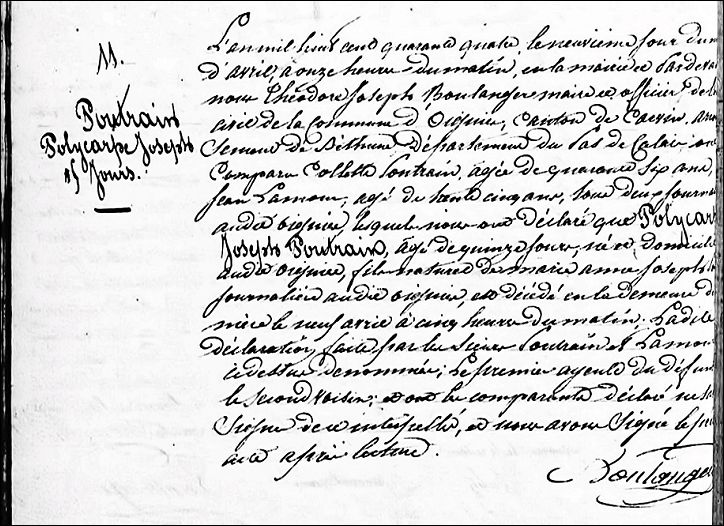 11.
Poutrain
Polycarpe Joseph
15 Jours.
L'an mil huit cent quarante quatre, le neuvieme jour du m
d'avril, a onze heure du matin, en la mairie et Pardeva
nous Théodore Joseph Boulanger maire et officier de l
civil de la commune d'Oignies, Canton de Carvin, arron
dissement de Béthune Département du Pas de Calais ont
Comparu Collette Poutrain, agée de quarante six ans,
Jean Lamour, agé de trente cinq ans, tous deux journa
audit oignies, lesquels nous ont déclaré que Polycar
Joseph Poutrain, agé de quinze jours, né et domicili
audit oignies, fils naturel de marie anne joseph
journalière audit oignies, est décédé en la demeure de
mère le neuf avril à cinq heures du matin. Ladite
déclaration, faite par les Sieurs Poutrain et Lamour
ci dessus dénommés; le premier ayeule du défun
le second voisin; et ont les comparants déclaré ne s
Signer de ce interpellé, et nous avons Signé le pré
acte après lecture.
Boulanger